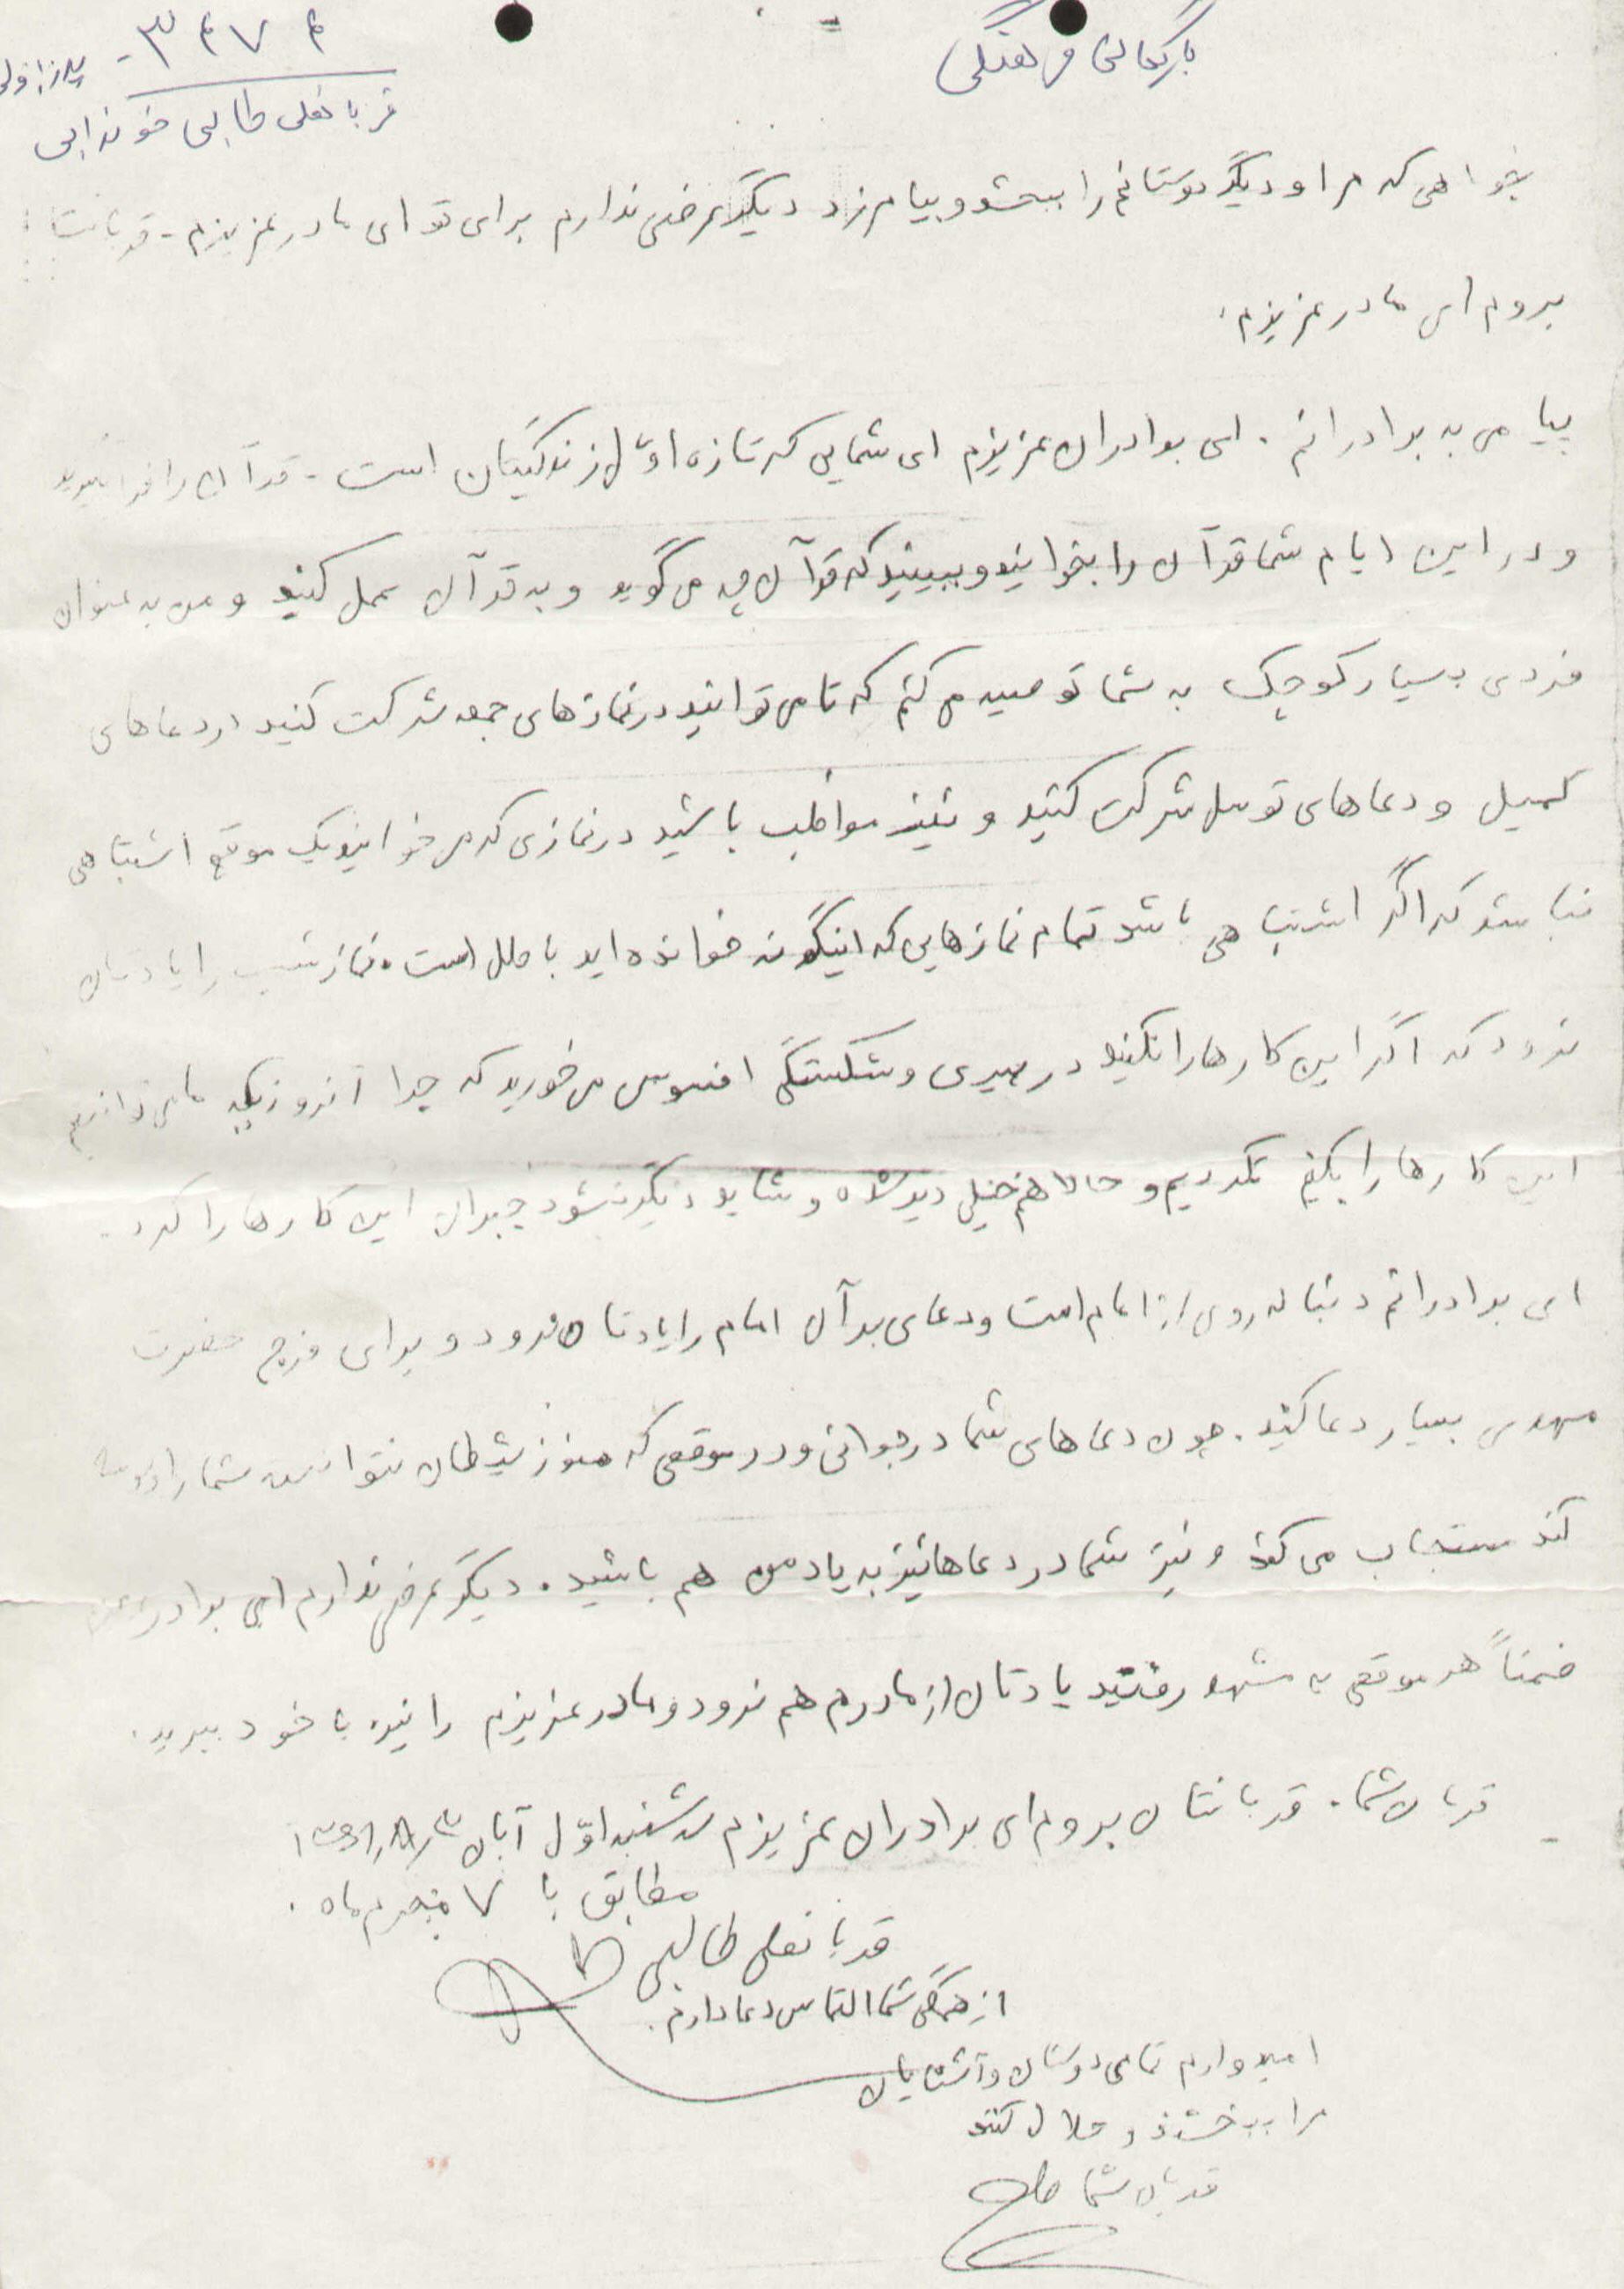 بایگانی فرهنگی
قربانعلی طالبی خوندابی
بخواهی که مرا و دیگر دوستانم را ببخشد و بیامرزد دیگر عرضی ندارم برای تو ای مادر عزیزم - قربانت
بروم ای مادر عزیزم.
پیامی به برادرانم. ای برادران عزیزم ای شمایی که تازه اوّل زندگیتان است - قرآن را فرا بگیرید
و در این ایام شما قرآن را بخوانید و ببینید که قرآن چه می گوید و به قرآن عمل کنید و من به عنوان
فردی بسیار کوچک به شما توصیه می کنم که تا می توانید در نمازهای جمعه شرکت کنید در دعاهای
کمیل و دعاهای توسل شرکت کنید و نیز مواظب باشید در نمازی که می خوانید یک موقع اشتباهی
نباشد که اگر اشتباهی باشد تمام نمازهایی که اینگونه خوانده اید باطل است. نماز شب را یادتان
نرود که اگر این کارها را نکنید در پیری و شکستگی افسوس می خورید که چرا آنروزیکه ما می توانستیم
این کارها را بکنیم نکردیم و حالا هم خیلی دیر شده و شاید دیگر نشود جبران این کارها را کرد.
ای برادرانم دنباله روی از امام است و دعای بر آن امام را یادتان نرود و برای فرج حضرت
مهدی بسیار دعا کنید. چون دعاهای شما در جوانی و در موقعی که هنوز شیطان نتوانسته شما را وسوسه
کند مستجاب می کند و نیز شما در دعاهاتیز به یاد من هم باشید. دیگر عرضی ندارم ای برادر عزیز
ضمناً هر موقعی به مشهد رفتید یادتان از مادرم هم نرود و مادر عزیزم را نیز با خود ببرید.
قربان شما. قربانتان بروم ای برادران عزیزم سه شنبه اوّل آبان ۱۳۶۱/۸/۳
مطابق با ۷ محرم ماه.
قربانعلی طالبی
از همگی شما التماس دعا دارم.
امیدوارم تمامی دوستان و آشنایان
مرا ببخشند و حلال کنند
قربان شما